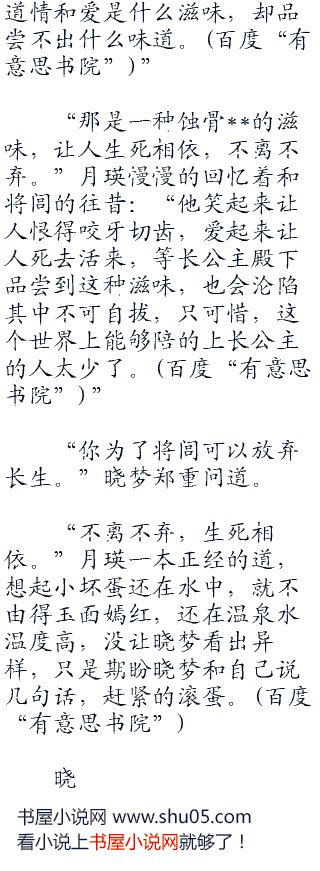 道情和爱是什么滋味，却品
尝不出什么味道。(百度“有
意思书院”)”
“那是一种蚀骨**的滋
味，让人生死相依，不离不
弃。”月瑛慢慢的回忆着和
将闾的往昔：“他笑起来让
人恨得咬牙切齿，爱起来让
人死去活来，等长公主殿下
品尝到这种滋味，也会沦陷
其中不可自拔，只可惜，这
个世界上能够陪的上长公主
的人太少了。(百度“有意思
书院”)”
“你为了将闾可以放弃
长生。”晓梦郑重问道。
“不离不弃，生死相
依。”月瑛一本正经的道，
想起小坏蛋还在水中，就不
由得玉面嫣红，还在温泉水
温度高，没让晓梦看出异
样，只是期盼晓梦和自己说
几句话，赶紧的滚蛋。(百度
“有意思书院”)
晓
书屋小说网 www.shu05.com
看小说上书屋小说网就够了！